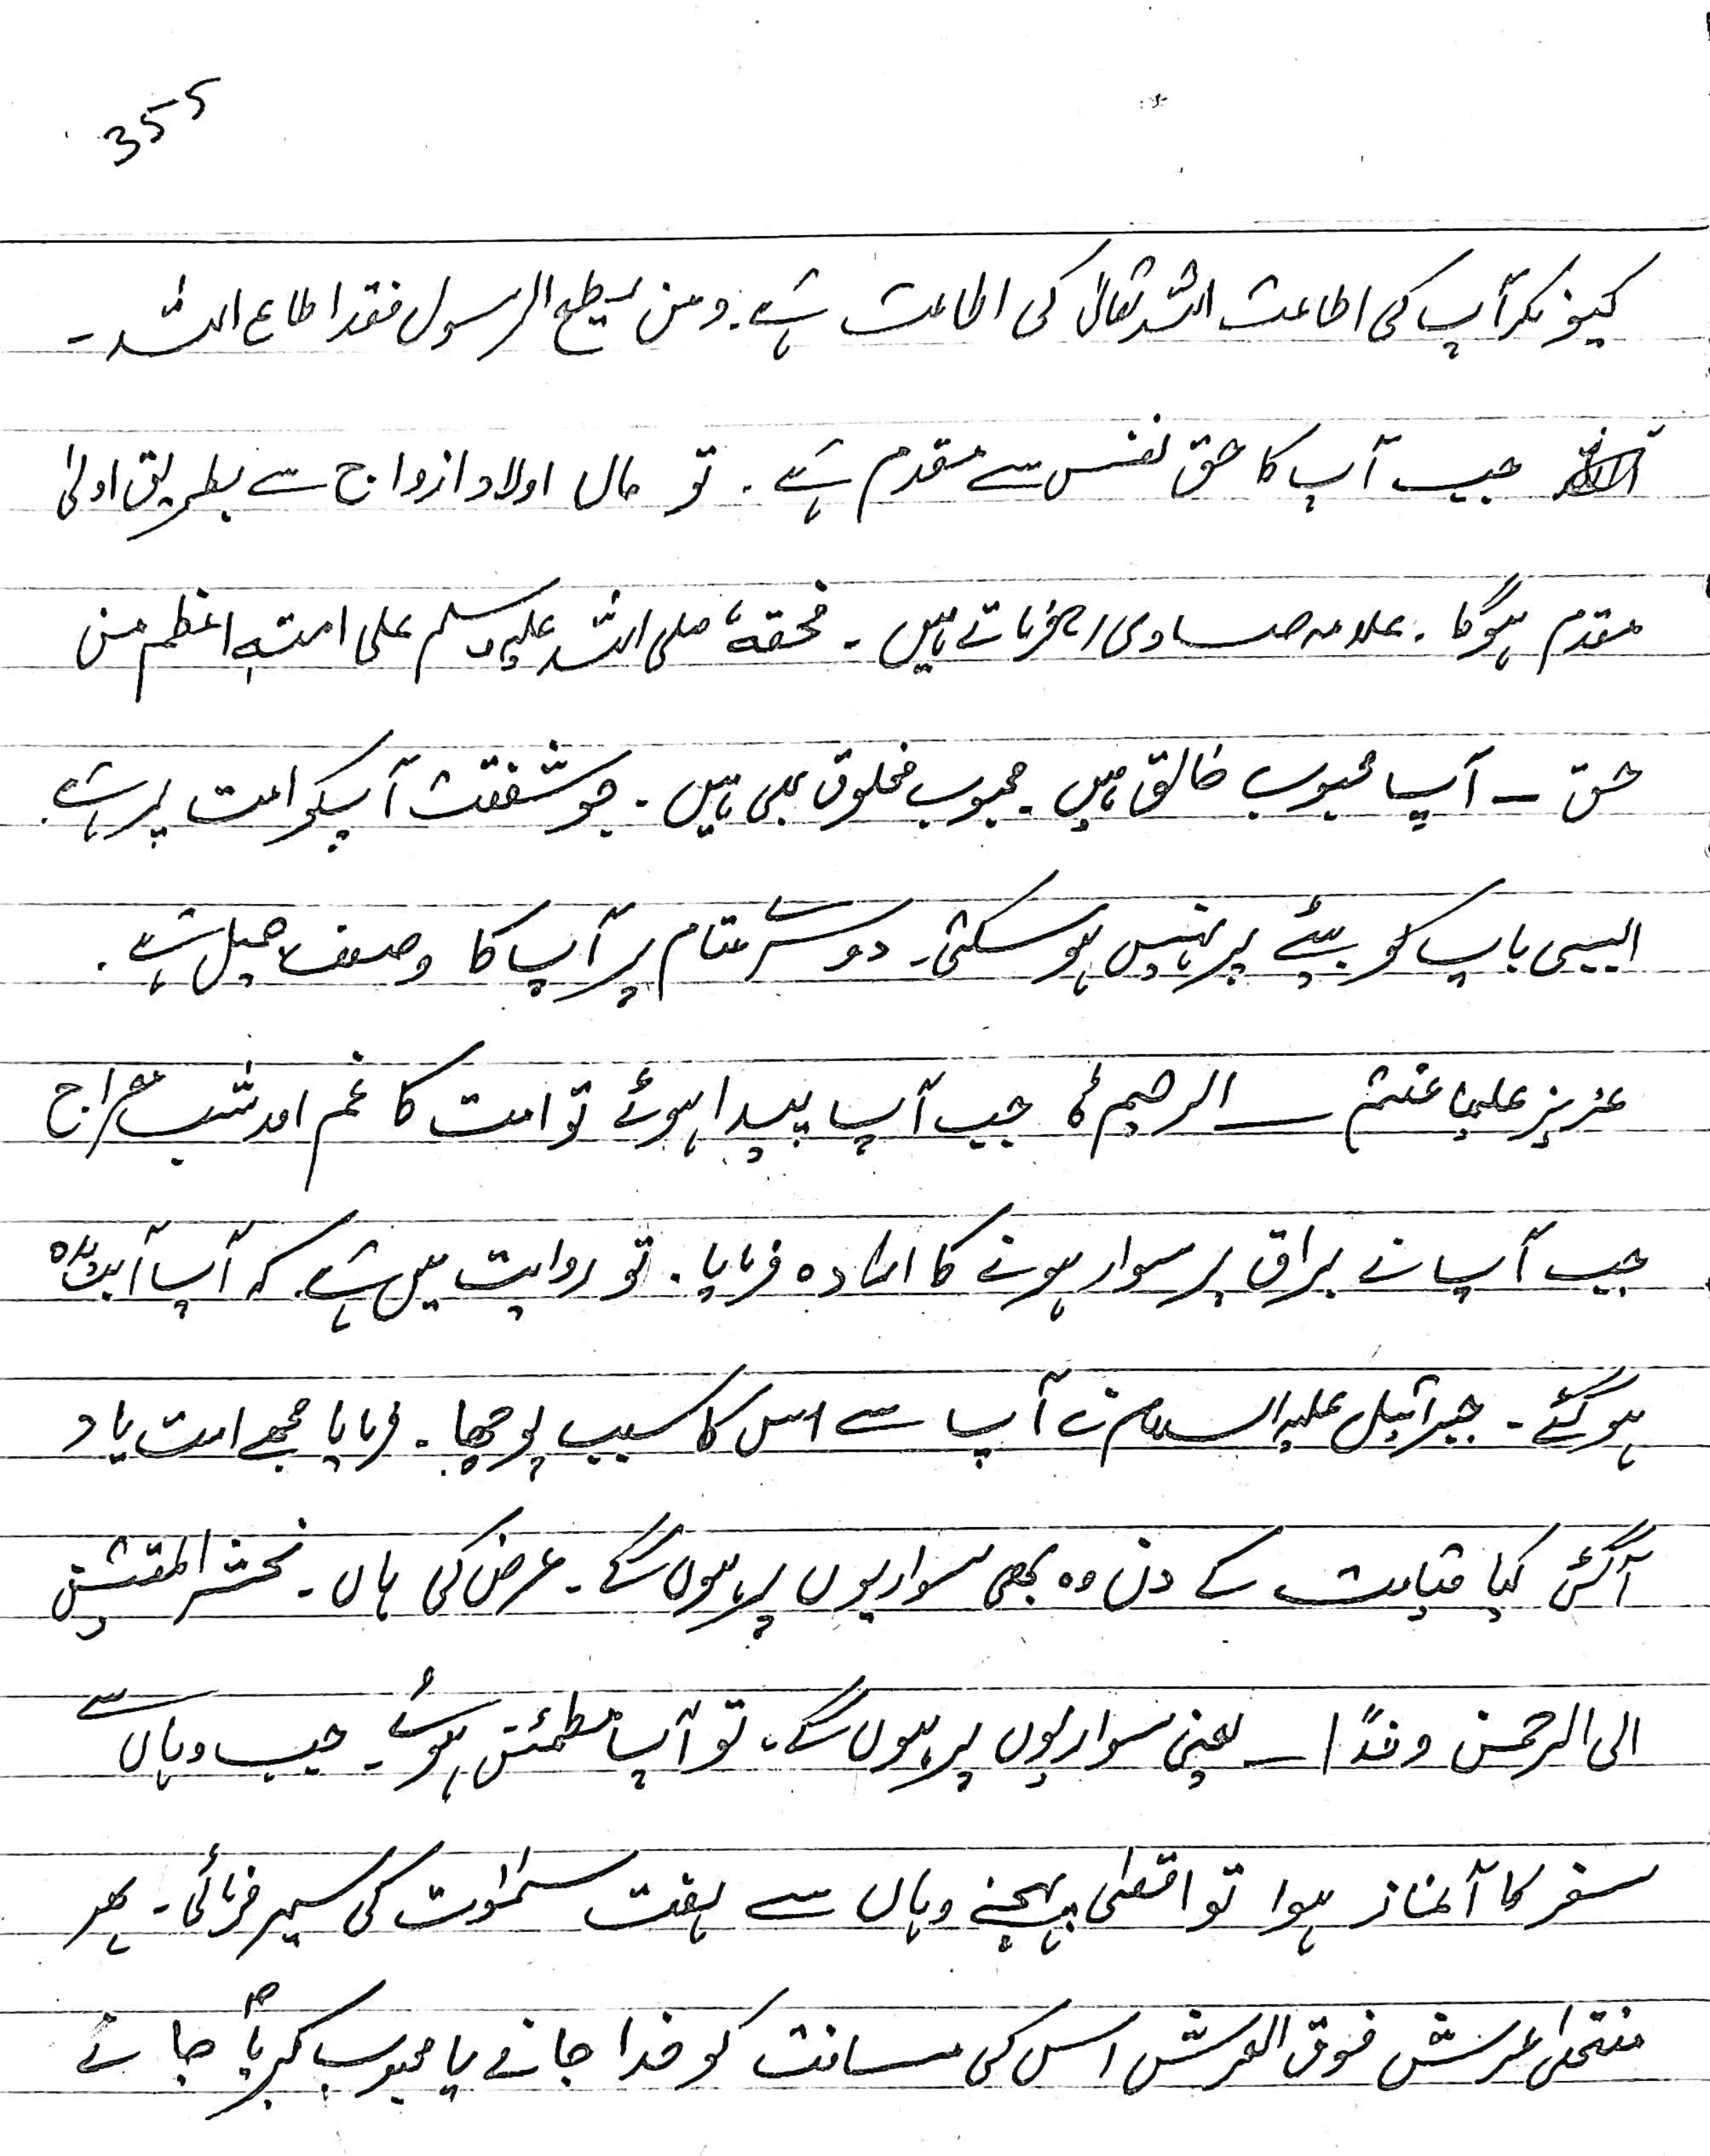 355
کیونکہ آپ کی اطاعت اللہ تعالیٰ کی اطاعت ہے۔ ومن یطع الرسول فقد اطاع اللہ۔
جب آپ کا حق نفس سے مقدم ہے۔ تو مال اولاد ازواج سے بطریق اولیٰ
مقدم ہوگا۔ علامہ صاوی رح فرماتے ہیں۔ فحقہٗ صلی اللہ علیہ وسلم علی امتہٖ اعظم من
حق – آپ محبوب خالق ہیں۔ محبوب مخلوق بھی ہیں۔ جو شفقت آپکو امت پر ہے۔
ایسی باپ کو بیٹے پر نہیں ہو سکتی۔ دوسرے مقام پر آپ کا وصف جمیل ہے۔
عزیز علیہ ما عنتم – الرحیم ہٗ جب آپ پیدا ہوئے تو امت کا غم اور شب معراج
جب آپ نے براق پر سوار ہونے کا ارادہ فرمایا۔ تو روایت میں ہے کہ آپ آبدیدہ
ہو گئے۔ جبرائیل علیہ السلام نے آپ سے اس کا سبب پوچھا۔ فرمایا مجھے امت یاد
آگئی کیا قیامت کے دن وہ بھی سواریوں پر ہوں گے۔ عرض کی ہاں۔ نحشر المتقین
الی الرحمٰن وفدًا – یعنی سواریوں پر ہوں گے، تو آپ مطمئن ہوئے۔ جب وہاں سے
سفر کا آغاز ہوا تو اقصٰی پہنچے وہاں سے ہفت سمٰوات کی سیر فرمائی۔ پھر
منتھٰی عرش فوق العرش اس کی مسافت کو خدا جانے یا محبوب کبریا ؐ جانے